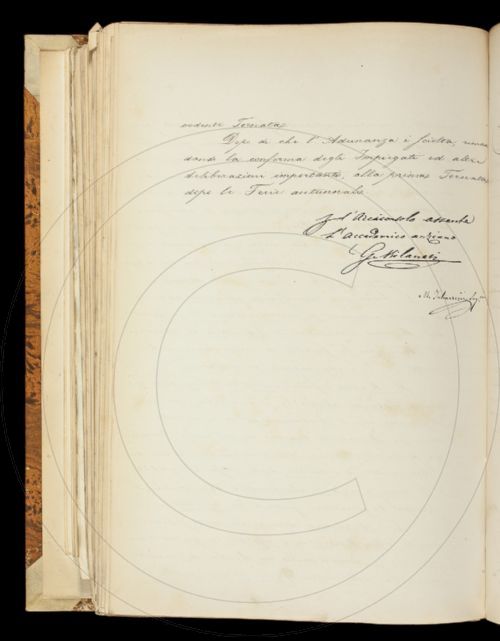 cedente Tornata.
Dopo di che l'Adunanza è sciolta, riman
dando la conferma degli Impiegati ed altre
deliberazioni importanti, alla prima Tornata
dopo le Ferie autunnali.
p. l'Arciconsolo assente
L'accademico anziano
G. Milanesi
M. Tabarrini Seg.rio